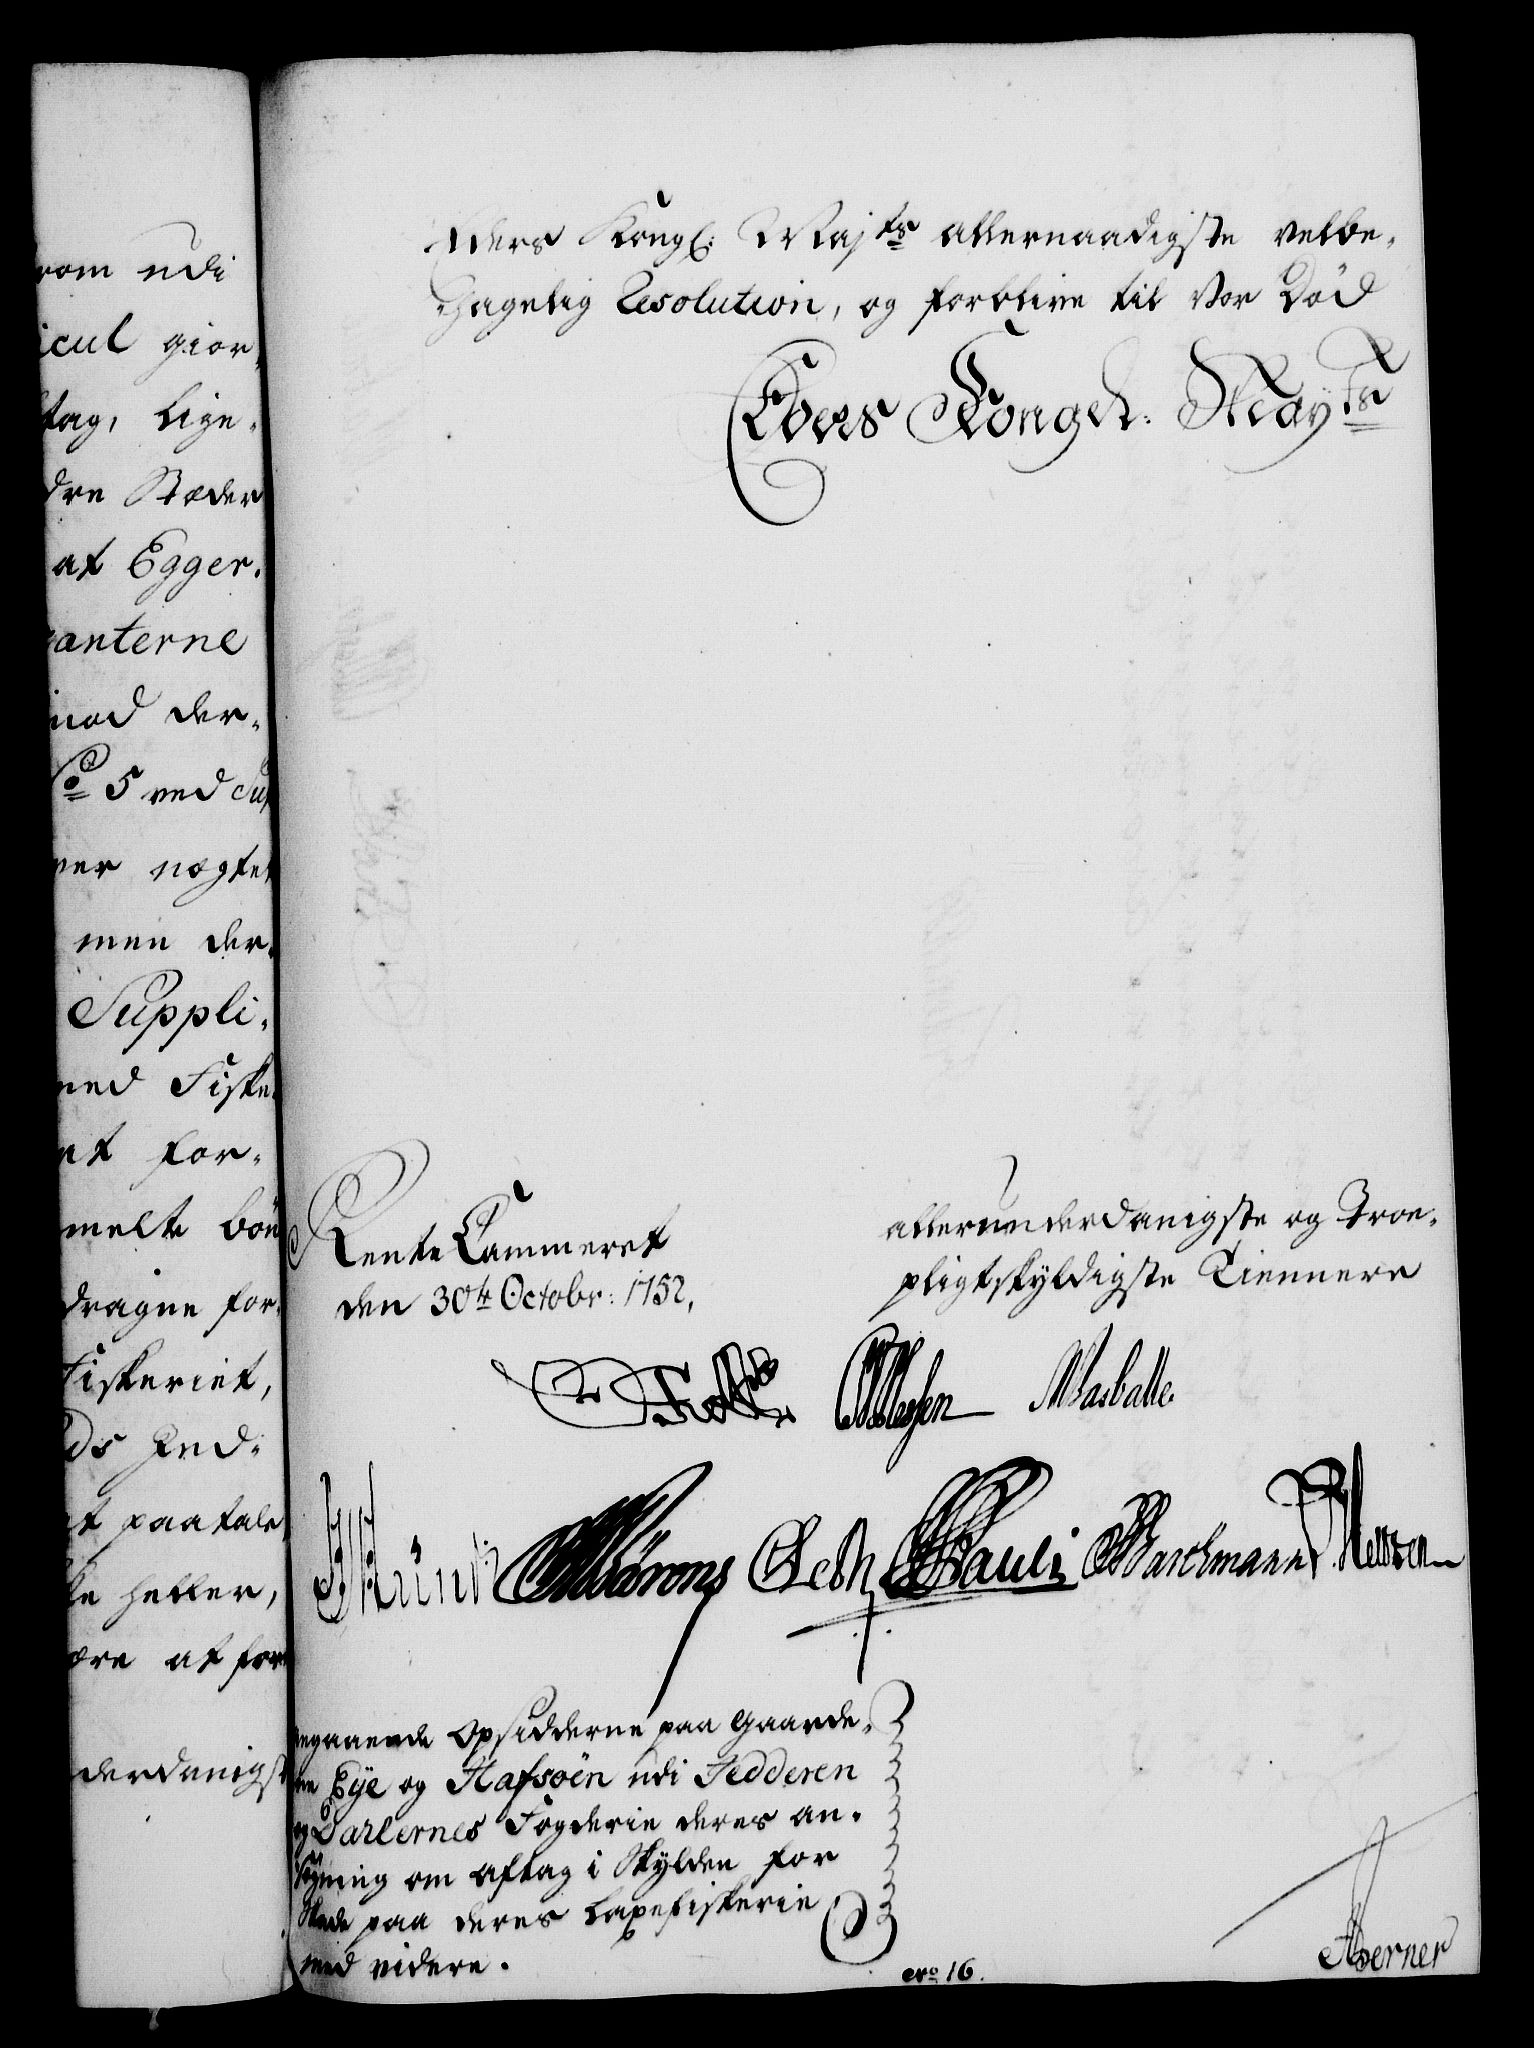 rom udi
icul gior-
tag, lige-
dre Stæder
at Egger-
anterne
mod der-
No 5 ved Su
ver nægtet
men der-
Suppli-
med Fiske
et for-
melte bøn
dragne for-
Fiskeriet,
ds Ind-
et paatale,
ke heller,
ære at for
derdanigst
Eders Kongl: Majts allernaadigste velbe-
hagelig Resolution, og forblive til vor Død
Eders Kongel. Mayts
Rente Cammeret
den 30te Octobr: 1752.
allerunderdanigste og Troe-
pligtskyldigste Tiennere
Pauli Barchmann
egaaende Opsidderne paa Gaarde-
ne Eÿe og Hafsøen udi Jedderen
og Dalernes Fogderie deres an-
søgning om Aftag i Skylden for
Skade paa deres Laxefiskerie
med videre.
No 16.